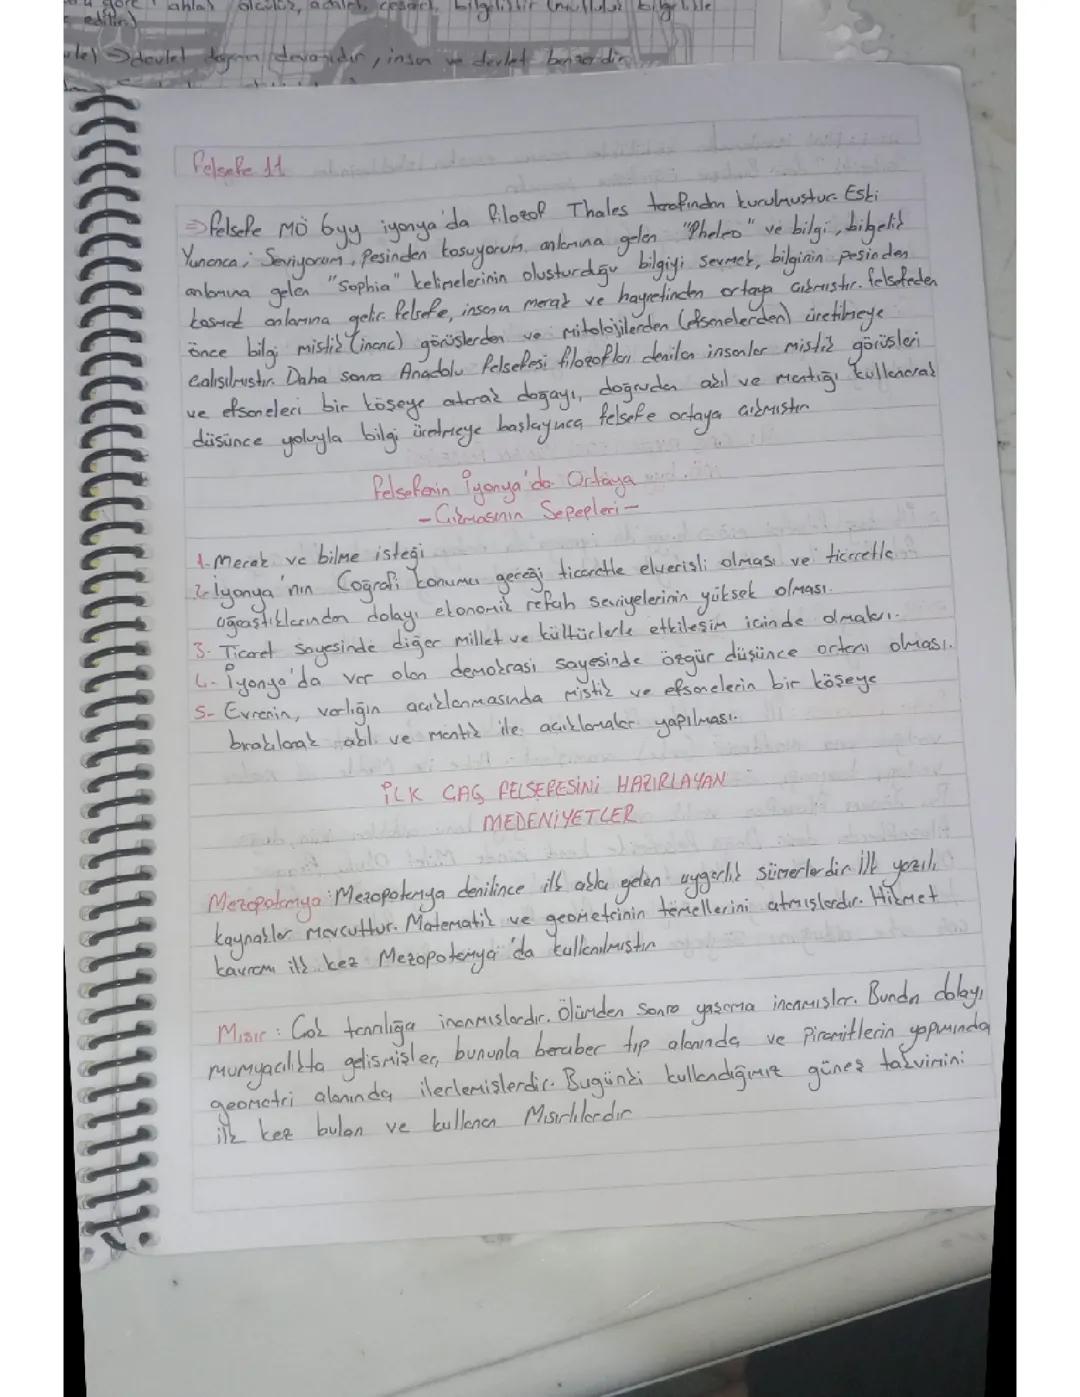 ahlak ölçülük, adalet, cesaret, bilgeliktir (mutluluk bilgelikle
edilir)
⇒ devlet doğanın devamıdır, insan ve devlet benzerdir
Felsefe 11
⇒ felsefe MÖ 6yy iyonya'da filozof Thales tarafından kurulmustur. Eski
Yunanca; Seviyorum, Pesinden kosuyorum anlamına gelen "Pheleo" ve bilgi, bilgelik
anlamına gelen "Sophia" kelimelerinin olusturduğu bilgiyi sevmek, bilginin pesinden
kosmak anlamına gelir. felsefe, insanın merak ve hayretinden ortaya cıkmıstır. felsefeden
önce bilgi mistik (inanc) görüslerden ve mitolojilerden (efsanelerden) üretilmeye
calısılmıstır. Daha sonra Anadolu felsefesi filozofları denilen insanlar mistik görüsleri
ve efsaneleri bir köseye atarak doğayı, doğrudan akıl ve mantığı kullanarak
düsünce yoluyla bilgi üretmeye baslayınca felsefe ortaya cıkmıstır
felsefenin İyonya'da Ortaya
- Cıkmasının Sepepleri -
1- Merak ve bilme isteği
2- İyonya'nın Coğrafi konumu gereği ticaretle elverisli olması ve ticaretle
uğrastıklarından dolayı ekonomik refah seviyelerinin yüksek olması.
3- Ticaret sayesinde diğer millet ve kültürlerle etkilesim icinde olmaları.
4- İyonya'da var olan demokrasi sayesinde özgür düsünce ortamı olması.
5- Evrenin, varlığın acıklanmasında mistik ve efsanelerin bir köseye
bırakılarak akıl ve mantık ile acıklamalar yapılması.
İLK CAĞ FELSEFESİNİ HAZIRLAYAN
MEDENİYETLER
Mezopotamya: Mezopotamya denilince ilk akla gelen uygarlık sümerlerdir. ilk yazılı
kaynaklar mevcuttur. Matematik ve geometrinin temellerini atmıslardır. Hikmet
kavramı ilk kez Mezopotamya'da kullanılmıstır
Mısır: Cok tanrılığa inanmıslardır. Ölümden sonra yasama inanmıslar. Bundan dolayı
mumyacılıkta gelismisler, bununla beraber tıp alanında ve Piramitlerin yapımında
geometri alanında ilerlemislerdir. Bugünki kullandığımız günes takvimini
ilk kez bulan ve kullanan Mısırlılardır